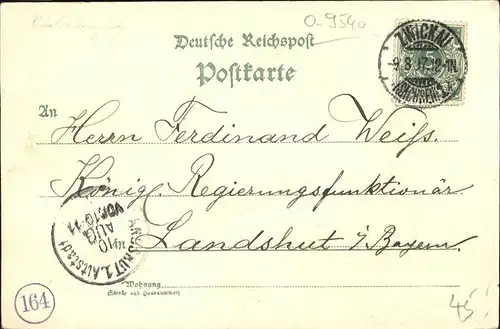 O-9540
Deutsche Reichspost
Postkarte
ZWICKAU
An
Herrn Ferdinand Weiß.
Königl. Regierungsfunktionär
Landshut i/Bayern.
LANDSHUT 1. Altstadt
10
AUG
VOR.10-11
Wohnung
(Straße und Hausnummer)
164
45